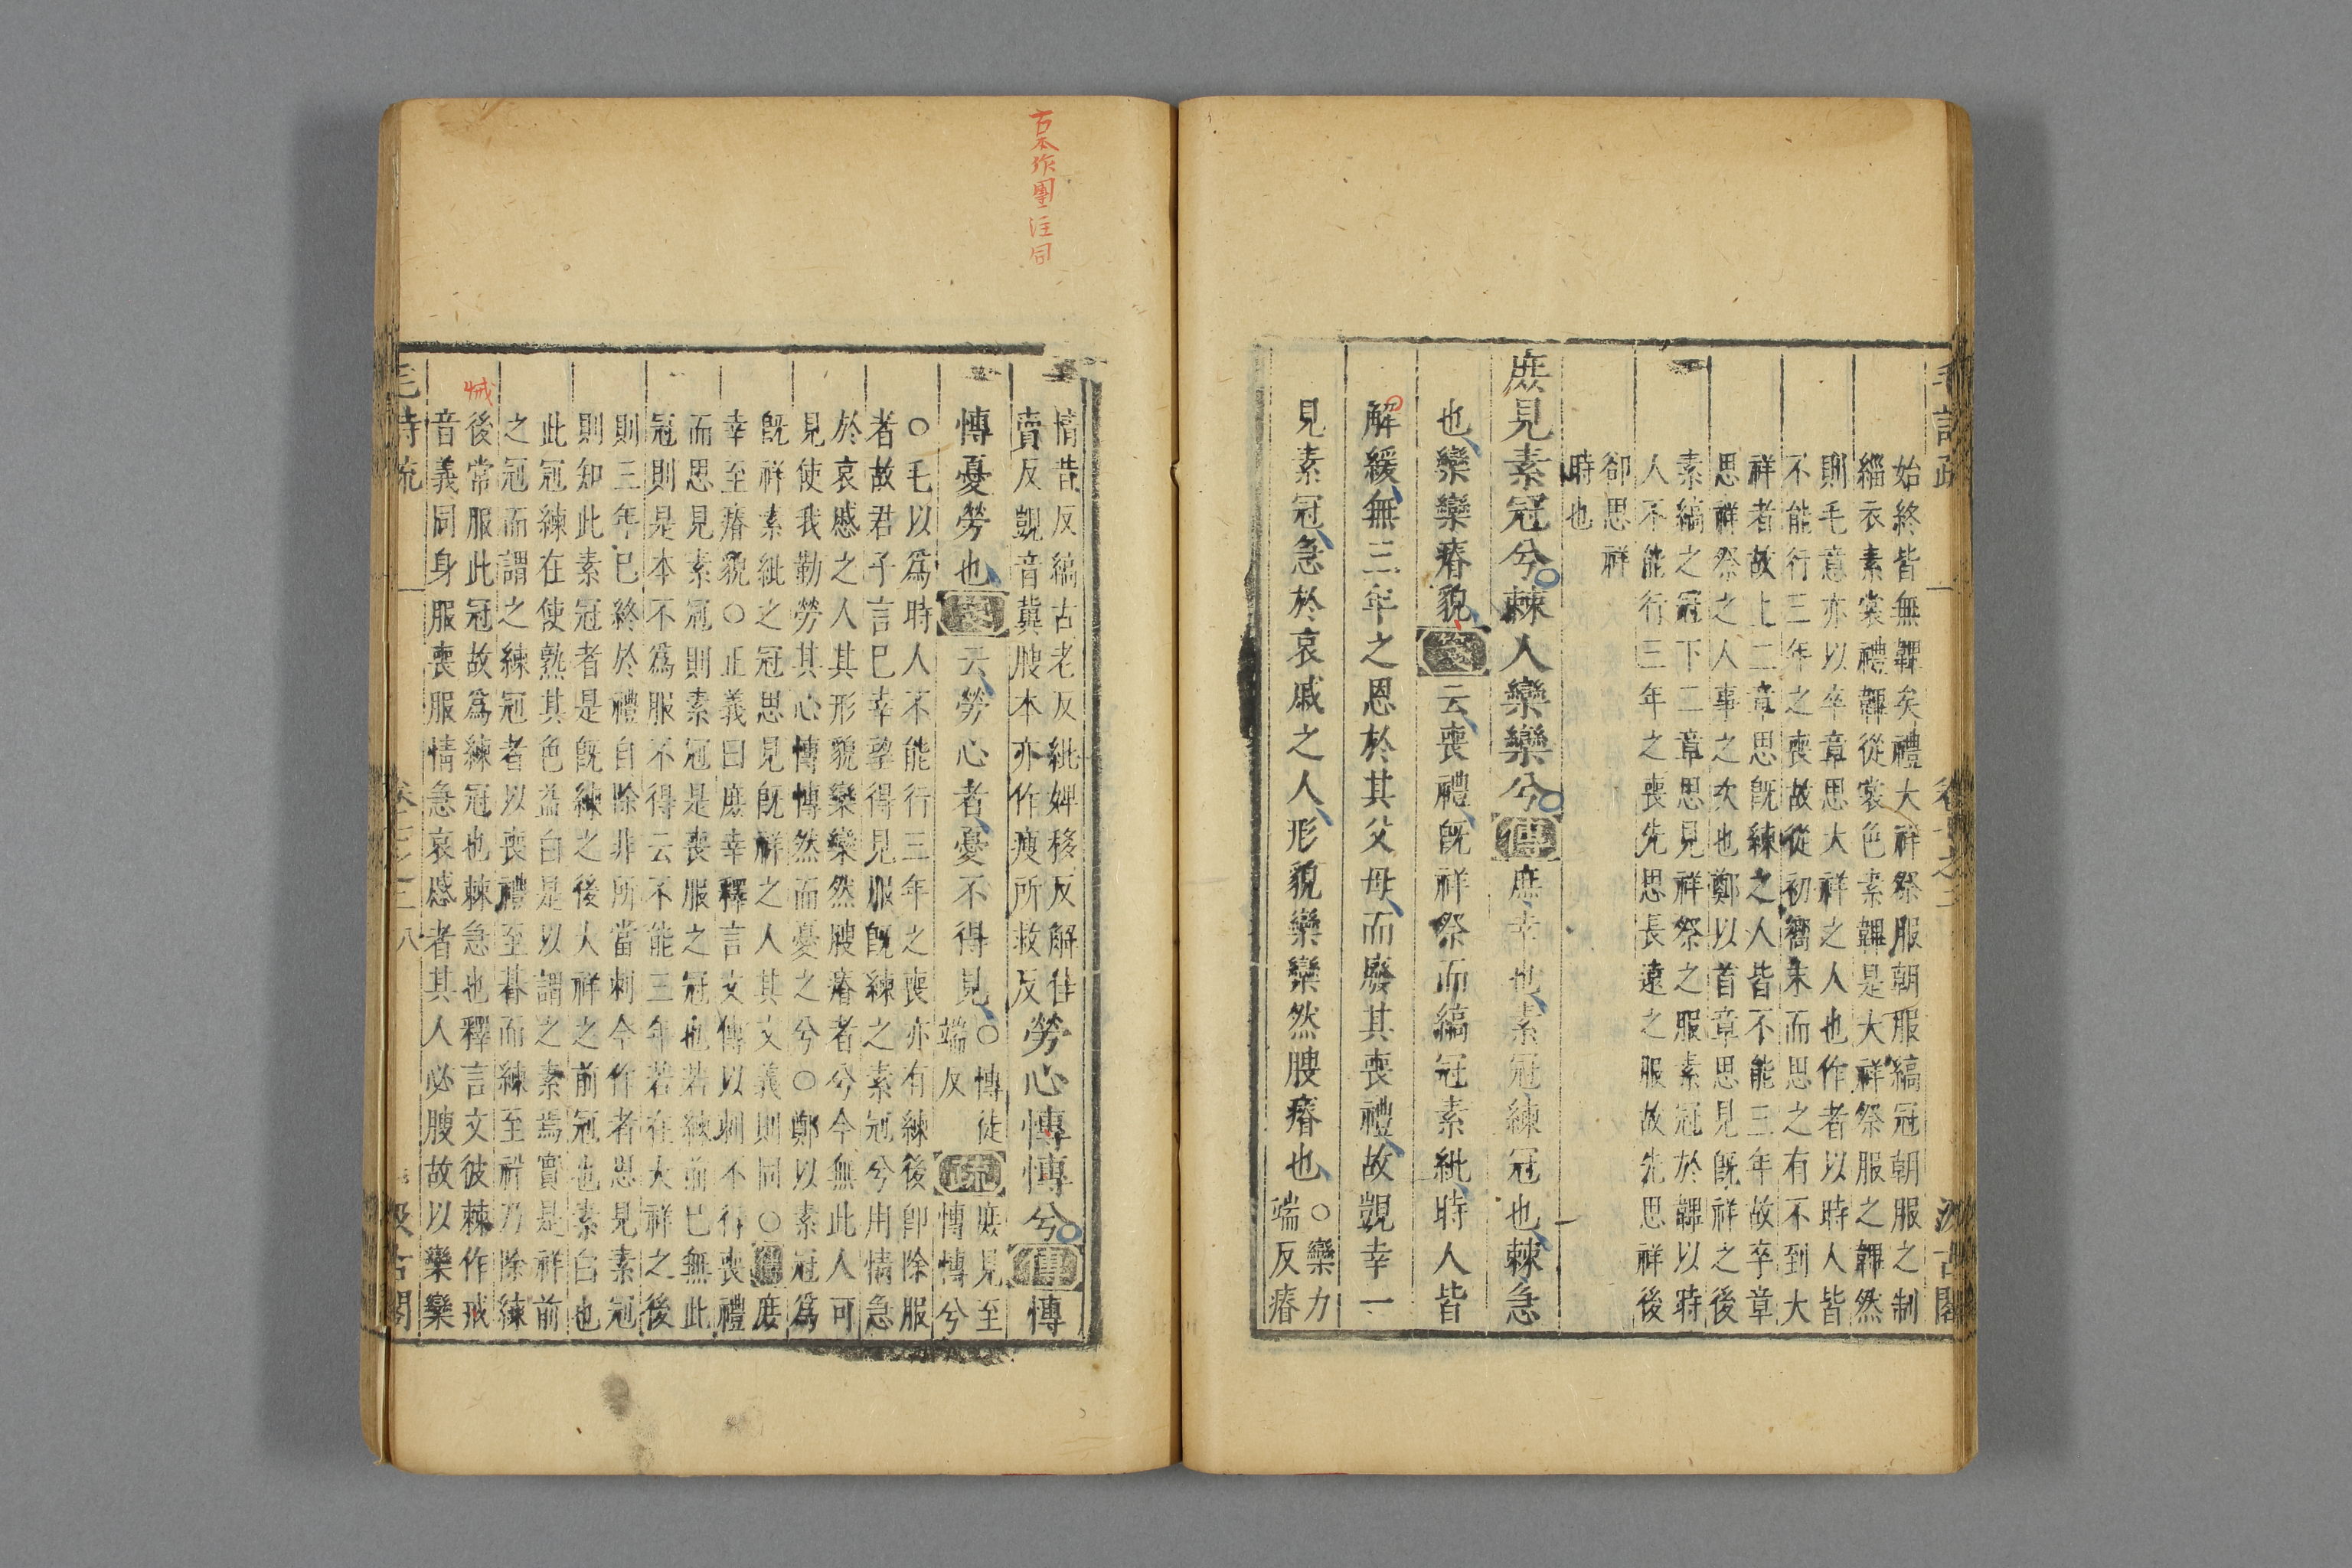 始終皆無韠矣禮大祥祭服朝服縞冠朝服之制
緇衣素裳禮韠從裳色素韠是大祥祭服之韠然
則毛意亦以卒章思大祥之人也作者以時人皆
不能行三年之喪故從初嚮末而思之有不到大
祥者故上二章思旣練之人皆不能三年故卒章
思祥祭之人事之次也鄭以首章思見旣祥之後
素縞之冠下二章思見祥祭之服素冠於韠以時
人不能行三年之喪先思長遠之服故先思祥後
卻思祥
時也
庶見素冠兮棘人欒欒兮傳庶幸也素冠練冠也棘急
也欒欒瘠貌箋云喪禮旣祥祭而縞冠素紕時人皆
解緩無三年之恩於其父母而廢其喪禮故覬幸一
見素冠急於哀戚之人形貌欒欒然膄瘠也○欒力
端反瘠
情昔反縞古老反紕婢移反解隹
賣反覬音冀膄本亦作瘦所救反
勞心慱慱兮傳慱
慱憂勞也箋云勞心者憂不得見○慱徒
端反
疏庶見至
慱慱兮
○毛以爲時人不能行三年之喪亦有練後卽除服
者故君子言已幸望得見服旣練之素冠兮用情急
於哀慼之人其形貌欒欒然膄瘠者兮今無此人可
見使我勤勞其心慱慱然而憂之兮○鄭以素冠爲
旣祥素紕之冠思見旣祥之人其文義則同○傳庶
幸至瘠貌○正義曰庶幸釋言文傳以刺不行喪禮
而思見素冠則素冠是喪服之冠也若練前已無此
冠則是本不爲服不得云不能三年若在大祥之後
則三年已終於禮自除非所當刺今作者思見素冠
則知此素冠者是旣練之後大祥之前冠也素白也
此冠練在使熟其色益白是以謂之素焉實是祥前
之冠而謂之練冠者以喪禮至朞而練至祥乃除練
後常服此冠故爲練冠也棘急也釋言文彼棘作戒
音義同身服喪服情急哀慼者其人必膄故以欒欒
毛詩疏
卷七之二
八
汲古閣
古本作團注同
悈